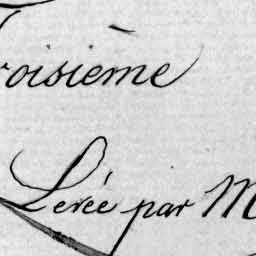 roisième
Levée par M